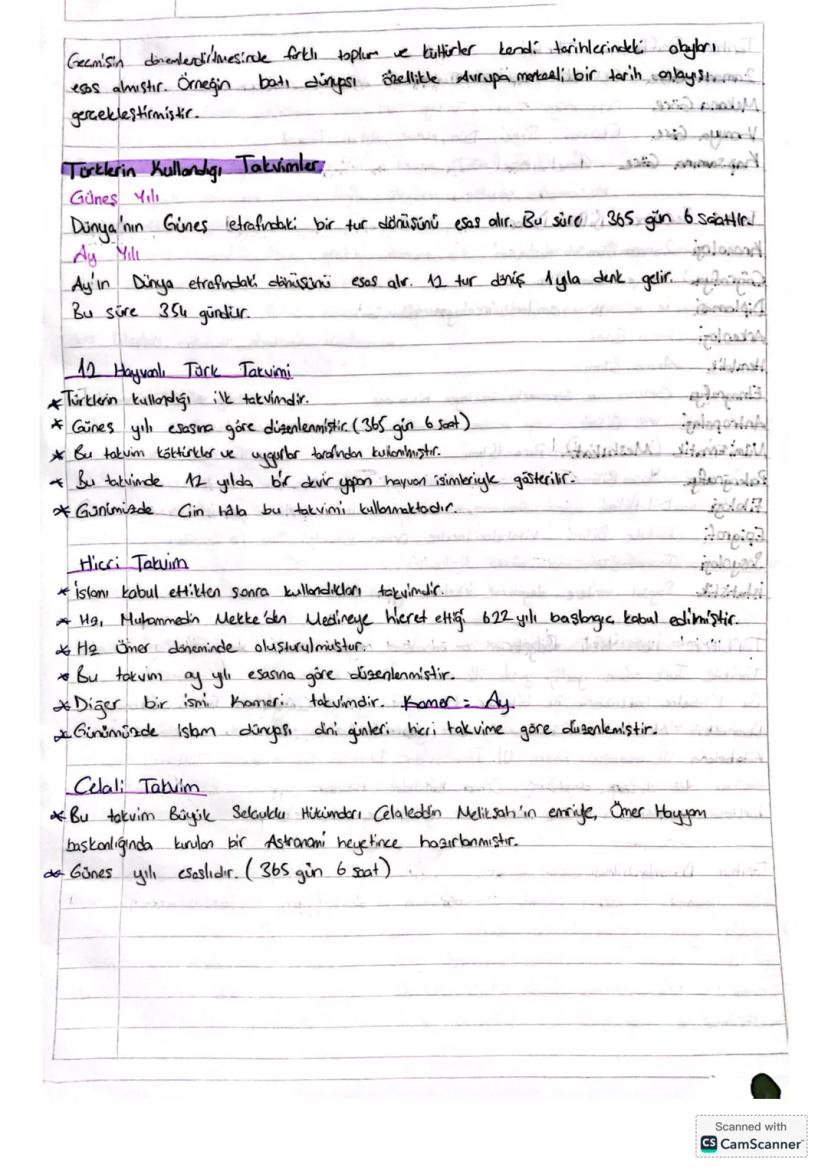 Geçmişin dönemlendirilmesinde farklı toplum ve kültürler kendi tarihlerindeki olayları
esas almıştır. Örneğin batı dünyası özellikle Avrupa merkezli bir tarih anlayışı
gerçekleştirmiştir.
Türklerin Kullandığı Takvimler
Güneş Yılı
Dünya'nın Güneş etrafındaki bir tur dönüşünü esas alır. Bu süre 365 gün 6 saattir.
Ay Yılı
Ay'ın Dünya etrafındaki dönüşünü esas alır. 12 tur dönüş 1 yıla denk gelir.
Bu süre 354 gündür.
12 Hayvanlı Türk Takvimi
* Türklerin kullandığı ilk takvimdir.
* Güneş yılı esasına göre düzenlenmiştir. (365 gün 6 saat)
* Bu takvim köktürkler ve uygurlar tarafından kullanılmıştır.
* Bu takvimde 12 yılda bir devir yapan hayvan isimleriyle gösterilir.
* Günümüzde Çin hâla bu takvimi kullanmaktadır.
Hicri Takvim
* İslamı kabul ettikten sonra kullandıkları takvimdir.
* Hz. Muhammedin Mekke'den Medineye hicret ettiği 622 yılı başlangıç kabul edilmiştir.
* Hz Ömer döneminde oluşturulmuştur.
* Bu takvim ay yılı esasına göre düzenlenmiştir.
* Diğer bir ismi Kameri takvimdir. Kamer = Ay
* Günümüzde İslam dünyası dini günleri hicri takvime göre düzenlemiştir.
Celali Takvim
* Bu takvim Büyük Selçuklu Hükümdarı Celaleddin Melikşah'ın emriyle, Ömer Hayyam
başkanlığında kurulan bir Astranomi heyetince hazırlanmıştır.
* Güneş yılı esaslıdır. (365 gün 6 saat)
Scanned with
CS CamScanner